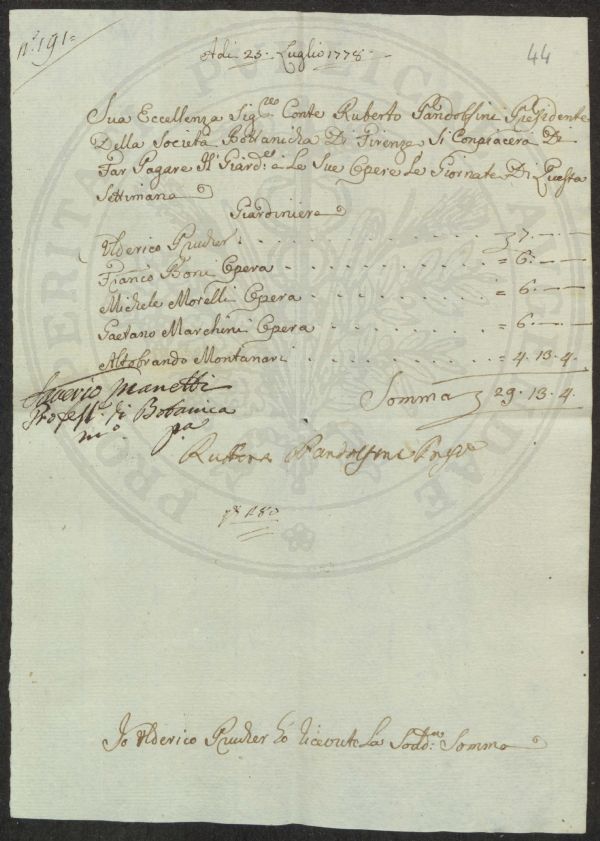 n.° 191=
44
Adi 25. Luglio 1778.
Sua Eccellenza Sig.re Conte Ruberto Pandolfini Presidente
Della Società Bottanicha Di Firenze Si Conpiacera Di
Far Pagare Il Giard.re e Le Sue Opere Le Giornate Di Questa
Settimana
Giardiniere
Ulderico Prucker 7. — —
Franco Boni Opera = 6. — —
Michele Morelli Opera = 6. — —
Gaetano Marchini Opera = 6. — —
Altobrando Montanari = 4. 13. 4.
Saverio Manetti
Profess. di Botanica
m.o p.a
Somma 29. 13. 4.
Ruberto Pandolfini Preg.e
180
Io Ulderico Prucker ho Riceuto La Sodd. Somma
PROSPERITATI PUBLICAE AUGENDAE